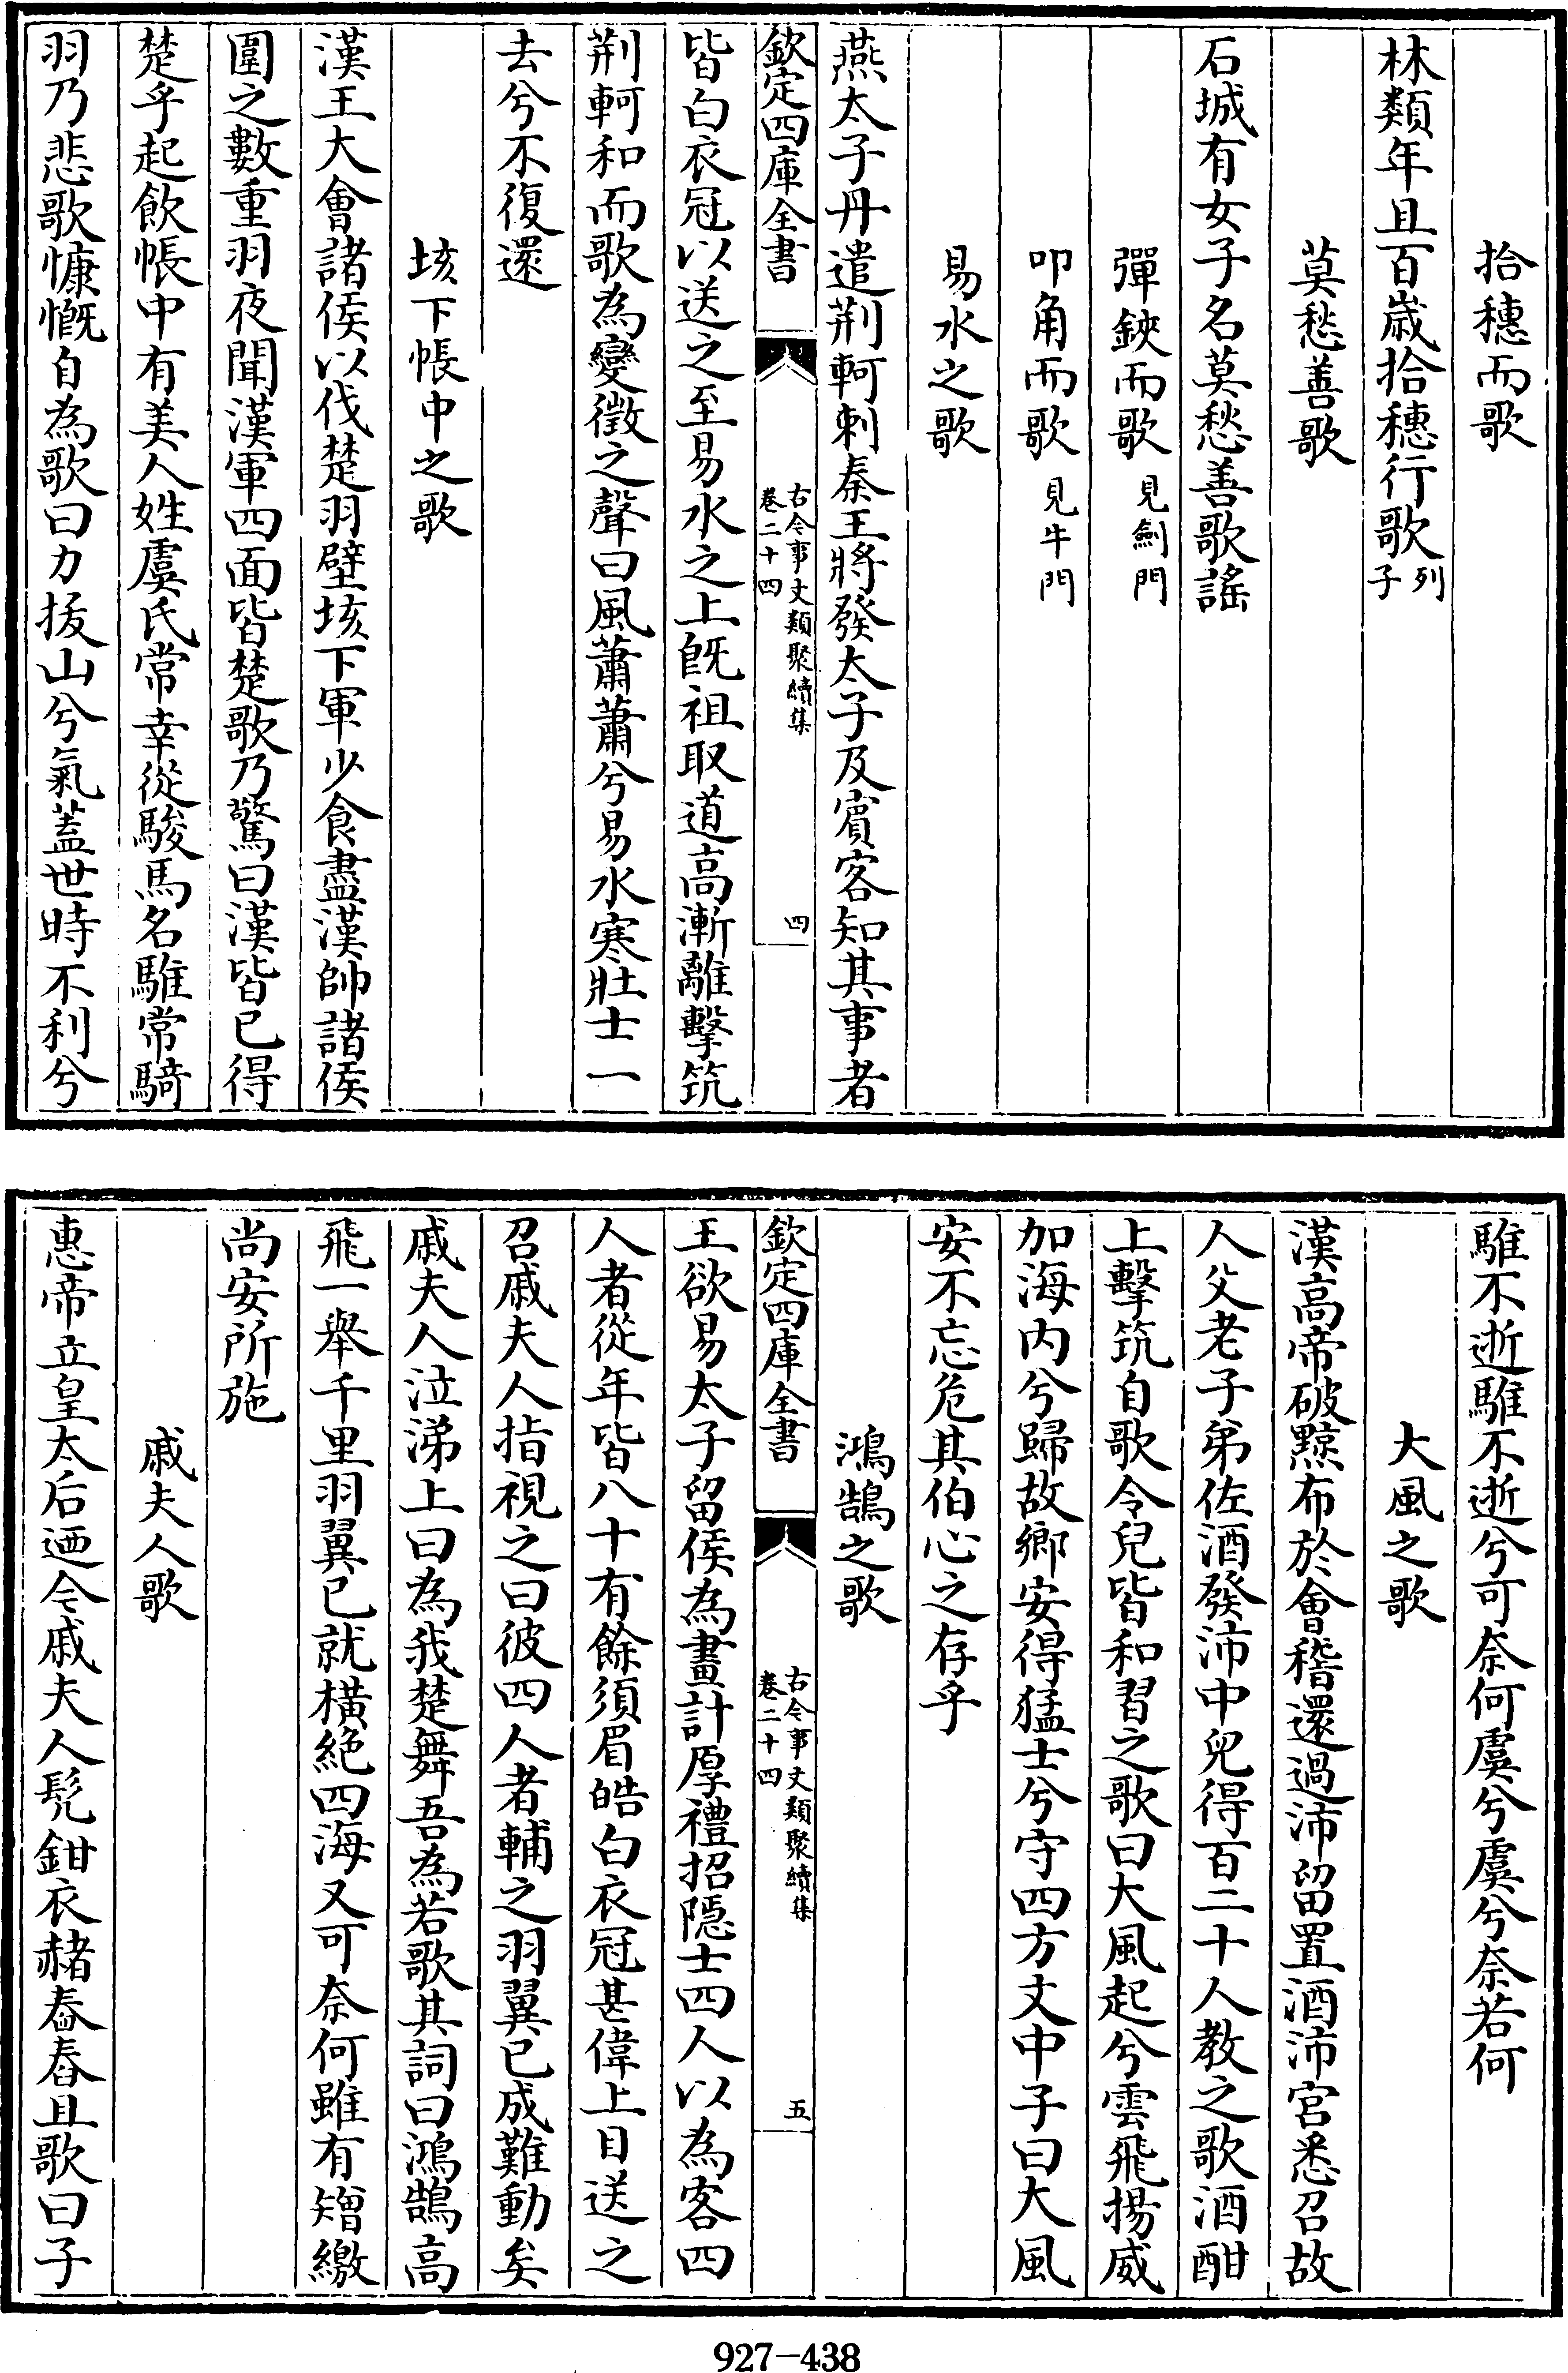 拾穗而歌
林類年且百歲拾穗行歌列子
莫愁善歌
石城有女子名莫愁善歌謠
彈鋏而歌見劍門
叩角而歌見牛門
易水之歌
燕太子丹遣荆軻刺秦王將發太子及賓客知其事者
欽定四庫全書
古今事文類聚續集
卷二十四
四
皆白衣冠以送之至易水之上既祖取道高漸離擊筑
荆軻和而歌為變徵之聲曰風蕭蕭兮易水寒壯士一
去兮不復還
垓下帳中之歌
漢王大會諸侯以伐楚羽壁垓下軍少食盡漢帥諸侯
圍之數重羽夜聞漢軍四面皆楚歌乃驚曰漢皆已得
楚乎起飲帳中有美人姓虞氏常幸從駿馬名騅常騎
羽乃悲歌慷慨自為歌曰力拔山兮氣蓋世時不利兮
騅不逝騅不逝兮可奈何虞兮虞兮奈若何
大風之歌
漢高帝破黥布於會稽還過沛留置酒沛宮悉召故
人父老子弟佐酒發沛中兒得百二十人教之歌酒酣
上擊筑自歌令兒皆和習之歌曰大風起兮雲飛揚威
加海内兮歸故鄉安得猛士兮守四方文中子曰大風
安不忘危其伯心之存乎
鴻鵠之歌
欽定四庫全書
古今事文類聚續集
卷二十四
五
王欲易太子留侯為畫計厚禮招隱士四人以為客四
人者從年皆八十有餘須眉皓白衣冠甚偉上目送之
召戚夫人指視之曰彼四人者輔之羽翼已成難動矣
戚夫人泣涕上曰為我楚舞吾為若歌其詞曰鴻鵠高
飛一舉千里羽翼已就橫絶四海又可奈何雖有矰繳
尚安所施
戚夫人歌
惠帝立皇太后迺令戚夫人髠鉗衣赭舂舂且歌曰子
927-438